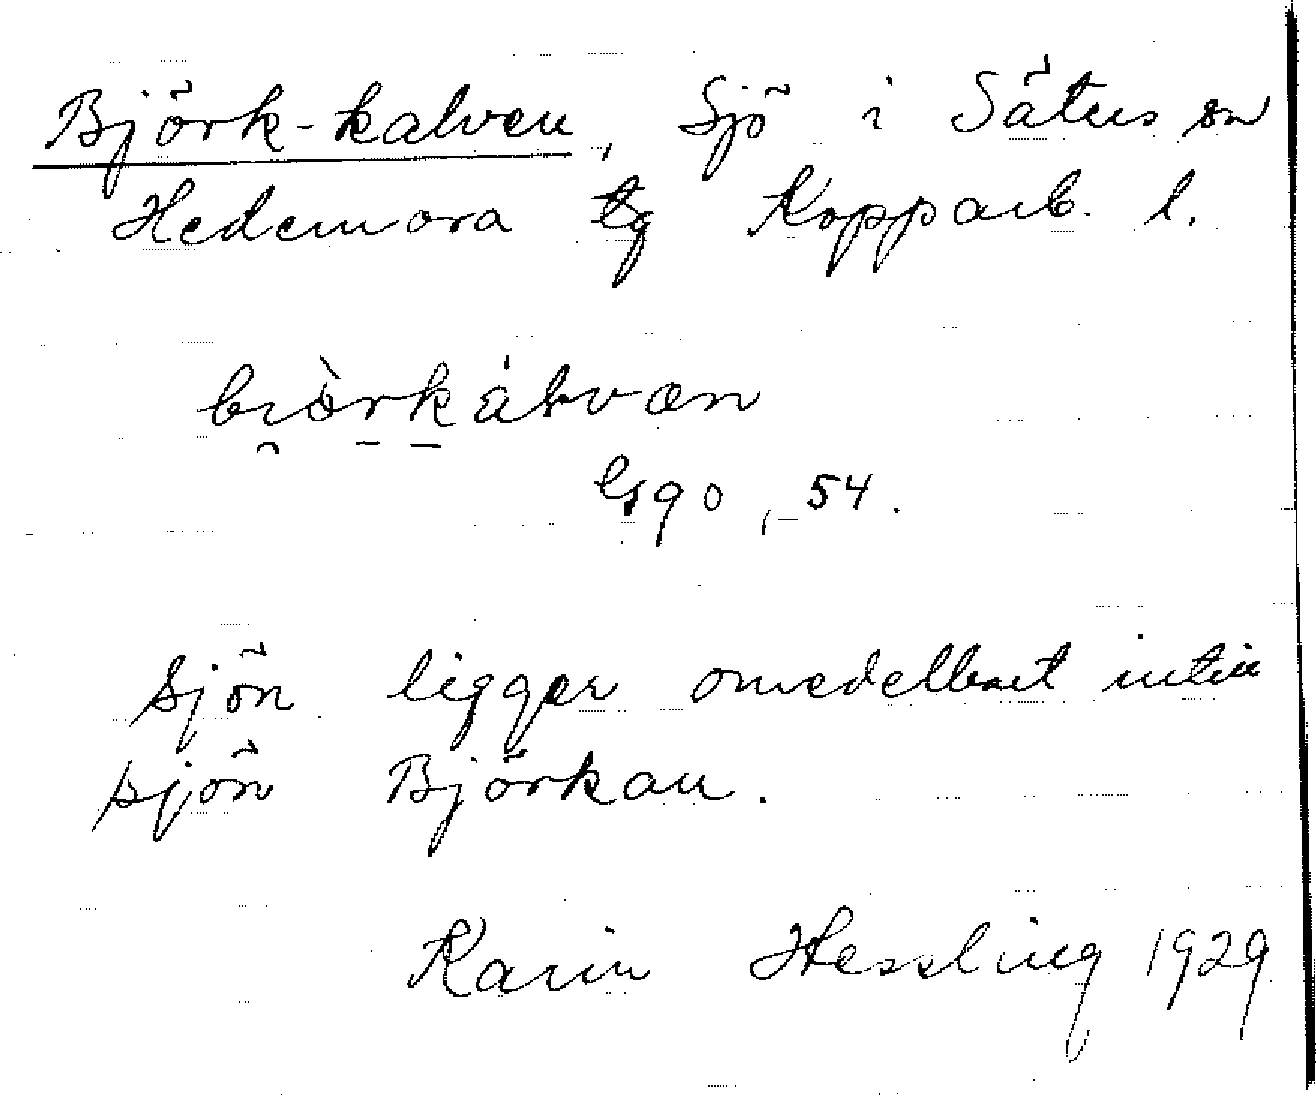 Björk-kalven, Sjö i Säters sn
Hedemora tg Kopparb. l.
Gs 90, 54.
Sjön ligger omedelbart intill
sjön Björkan.
Karin Hessling 1929